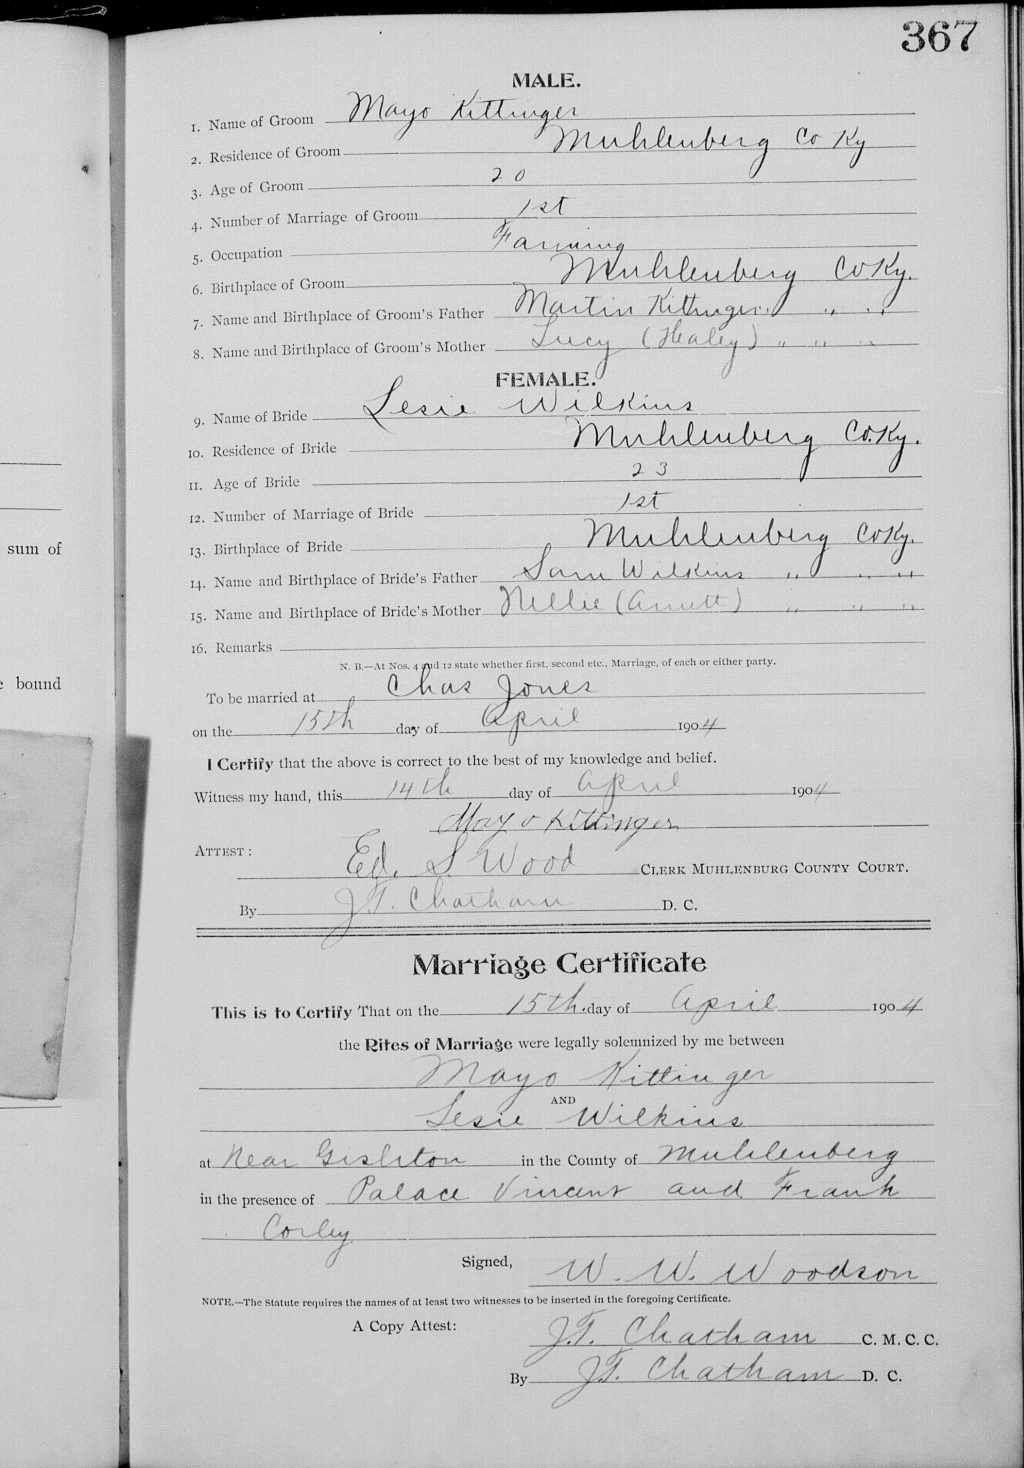 367
MALE.
1. Name of Groom Mayo Kittinger
2. Residence of Groom Muhlenberg Co Ky
3. Age of Groom 20
4. Number of Marriage of Groom 1st
5. Occupation Farming
6. Birthplace of Groom Muhlenberg Co Ky.
7. Name and Birthplace of Groom's Father Martin Kittinger " "
8. Name and Birthplace of Groom's Mother Lucy (Healey) " " "
FEMALE.
9. Name of Bride Lesie Wilkins
10. Residence of Bride Muhlenberg Co. Ky.
11. Age of Bride 23
12. Number of Marriage of Bride 1st
13. Birthplace of Bride Muhlenberg Co Ky.
14. Name and Birthplace of Bride's Father Sam Wilkins " " "
15. Name and Birthplace of Bride's Mother Nellie (Arnett) " " "
16. Remarks
N. B.—At Nos. 4 and 12 state whether first, second etc., Marriage, of each or either party.
To be married at Chas Jones
on the 15th day of April 1904
I Certify that the above is correct to the best of my knowledge and belief.
Witness my hand, this 14th day of April 1904
Mayo Kittinger
ATTEST: Ed. S. Wood CLERK MUHLENBURG COUNTY COURT.
By J.T. Chatham D. C.
Marriage Certificate
This is to Certify That on the 15th day of April 1904
the Rites of Marriage were legally solemnized by me between
Mayo Kittinger
AND
Lesie Wilkins
at Near Gishton in the County of Muhlenberg
in the presence of Palace Vincent and Frank
Corley
Signed, W. W. Woodson
NOTE.—The Statute requires the names of at least two witnesses to be inserted in the foregoing Certificate.
A Copy Attest: J.T. Chatham C. M. C. C.
By J.T. Chatham D. C.
sum of
bound